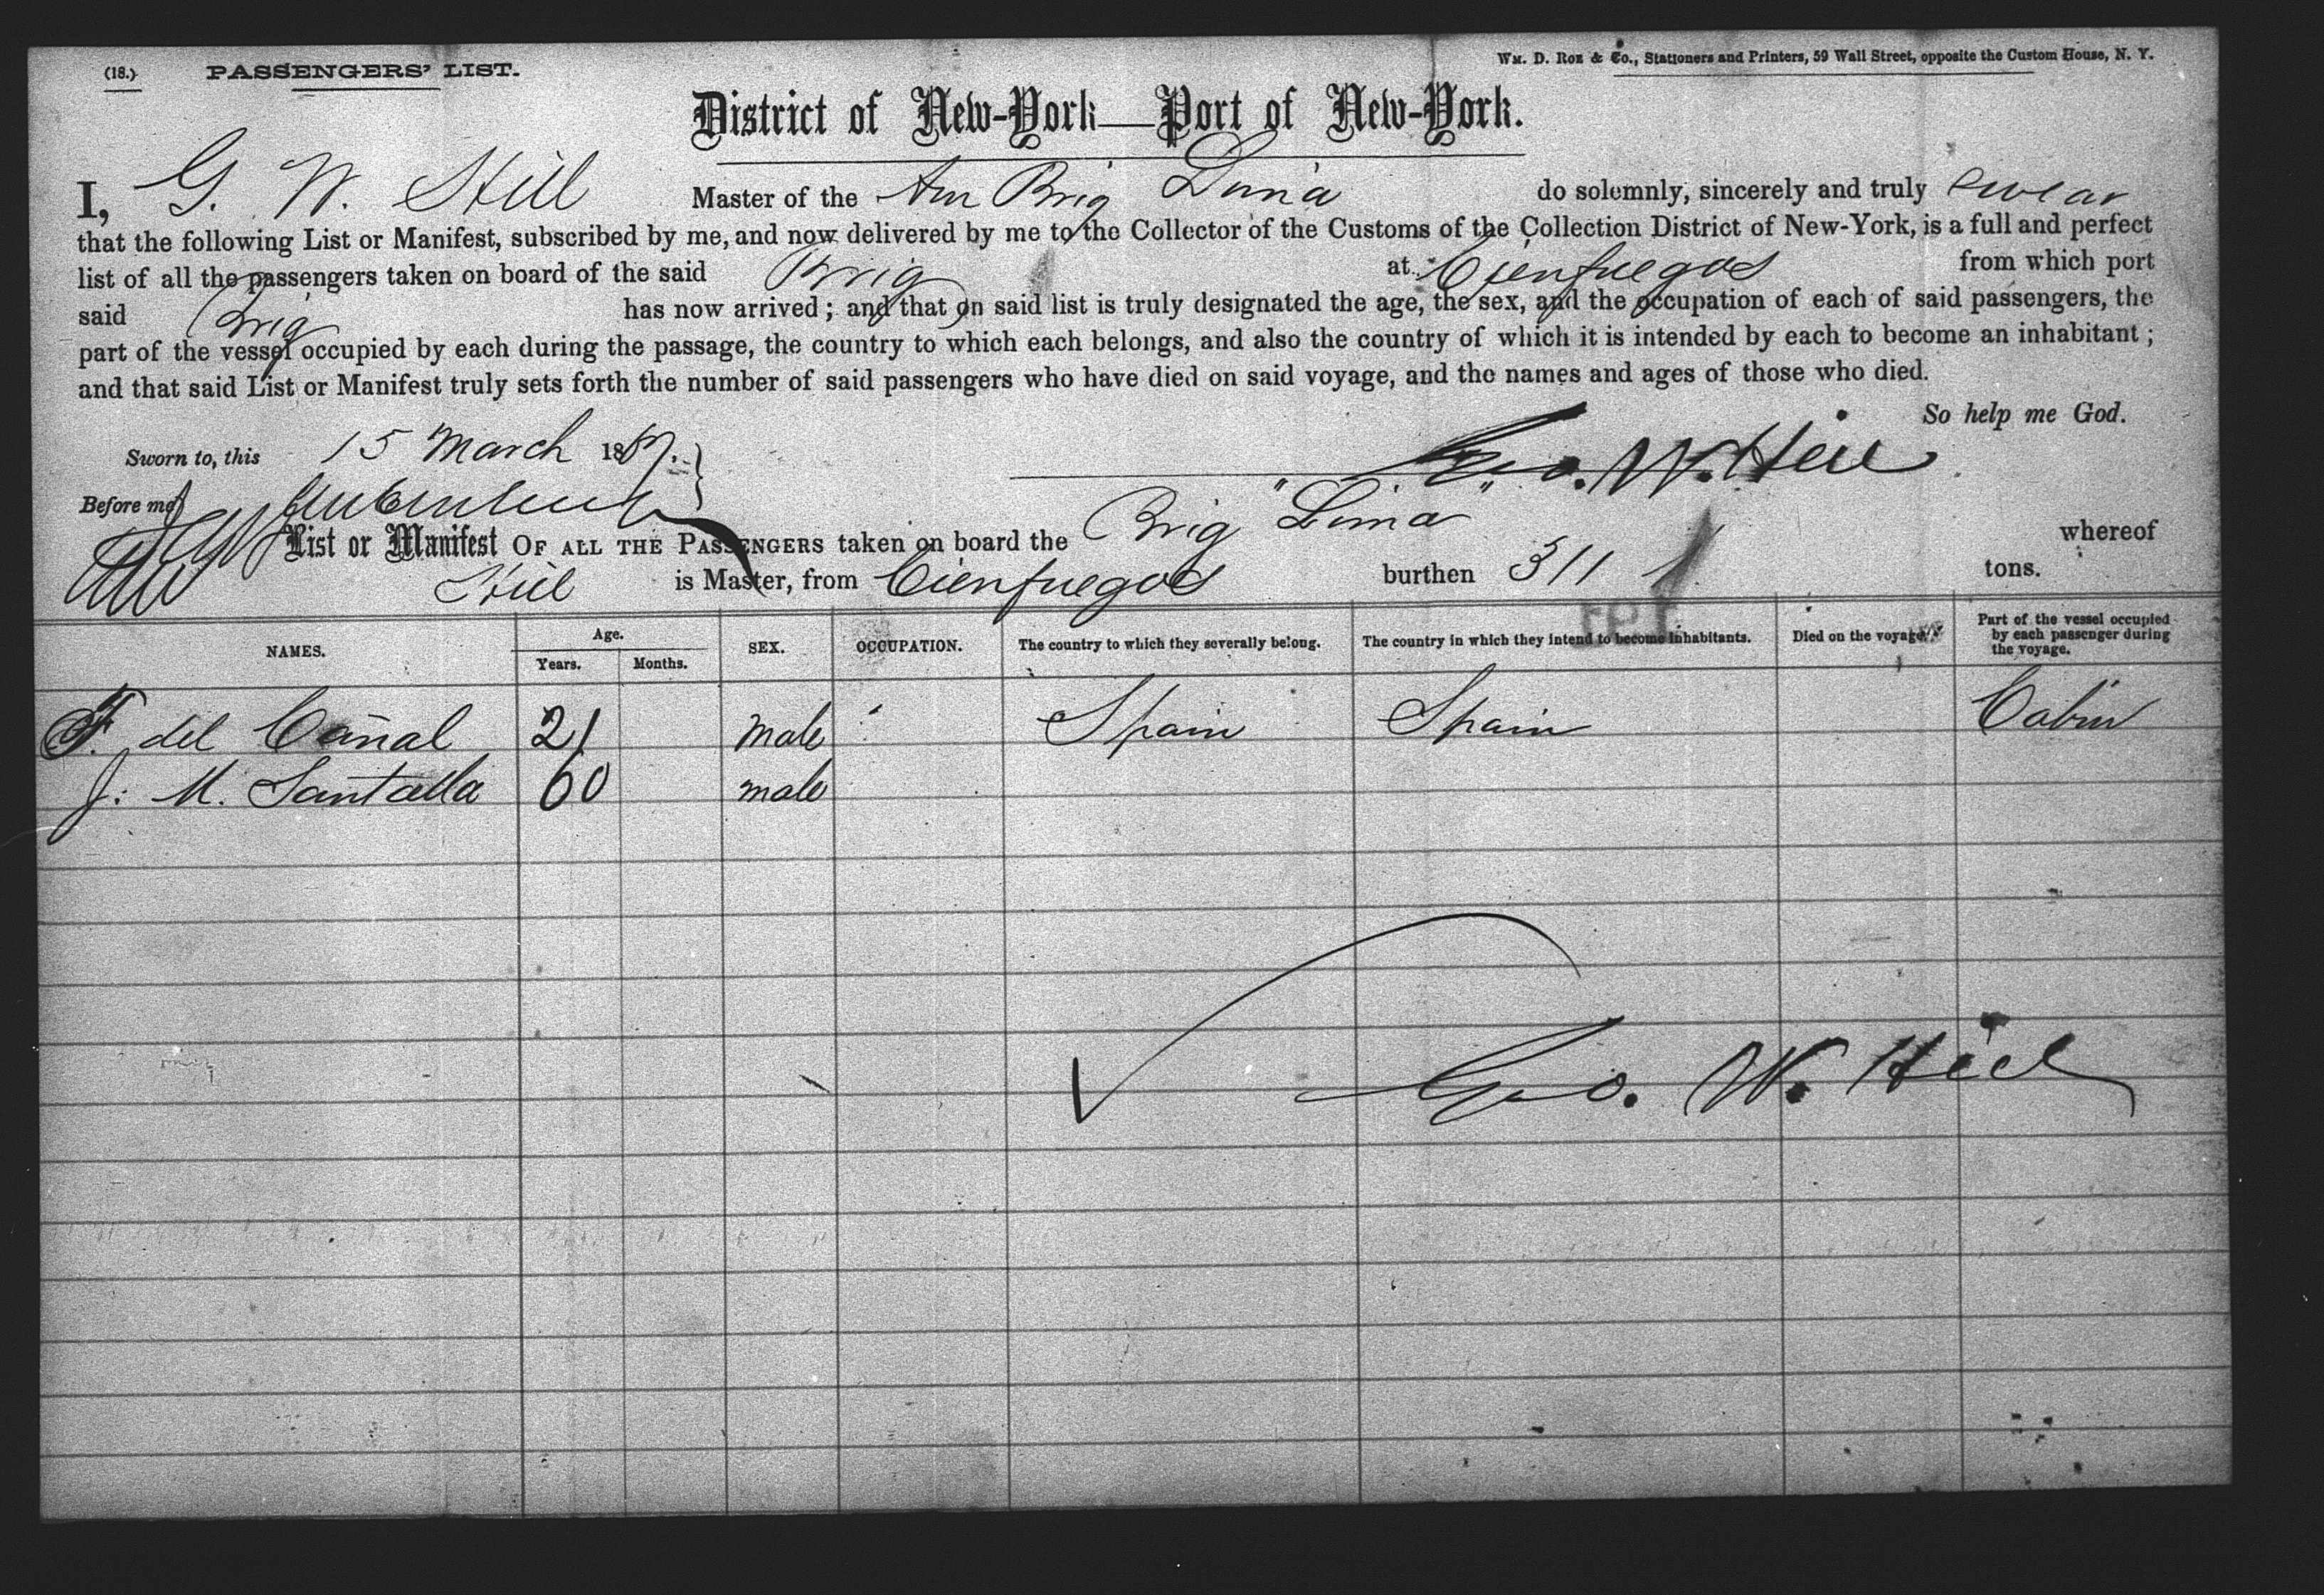 (18.) PASSENGERS' LIST. Wm. D. Roe & Co., Stationers and Printers, 59 Wall Street, opposite the Custom House, N. Y.
District of New-York—Port of New-York.
I, G. W. Hill Master of the Am Brig Lima do solemnly, sincerely and truly swear
that the following List or Manifest, subscribed by me, and now delivered by me to the Collector of the Customs of the Collection District of New-York, is a full and perfect
list of all the passengers taken on board of the said Brig at Cienfuegos from which port
said Brig has now arrived; and that on said list is truly designated the age, the sex, and the occupation of each of said passengers, the
part of the vessel occupied by each during the passage, the country to which each belongs, and also the country of which it is intended by each to become an inhabitant;
and that said List or Manifest truly sets forth the number of said passengers who have died on said voyage, and the names and ages of those who died.
So help me God.
Sworn to, this 15 March 18
Geo. W. Hill
Before me
List or Manifest OF ALL THE PASSENGERS taken on board the Brig "Lima" whereof
Hill is Master, from Cienfuegos burthen 311 tons.
NAMES. Age. Years. Months. SEX. OCCUPATION. The country to which they severally belong. The country in which they intend to become inhabitants. Died on the voyage. Part of the vessel occupied by each passenger during the voyage.
F. del Cañal 21 Male Spain Spain Cabin
J. M. Santalla 60 male
Geo. W. Hill